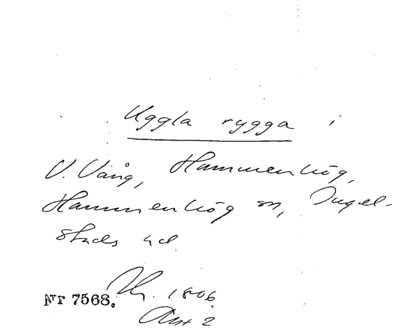 Uggla rygga i
V. Vång, Hammenhög,
Hammenhög sn, Ingel-
stads hd.
Nr 7568. 1806.
Akt 2